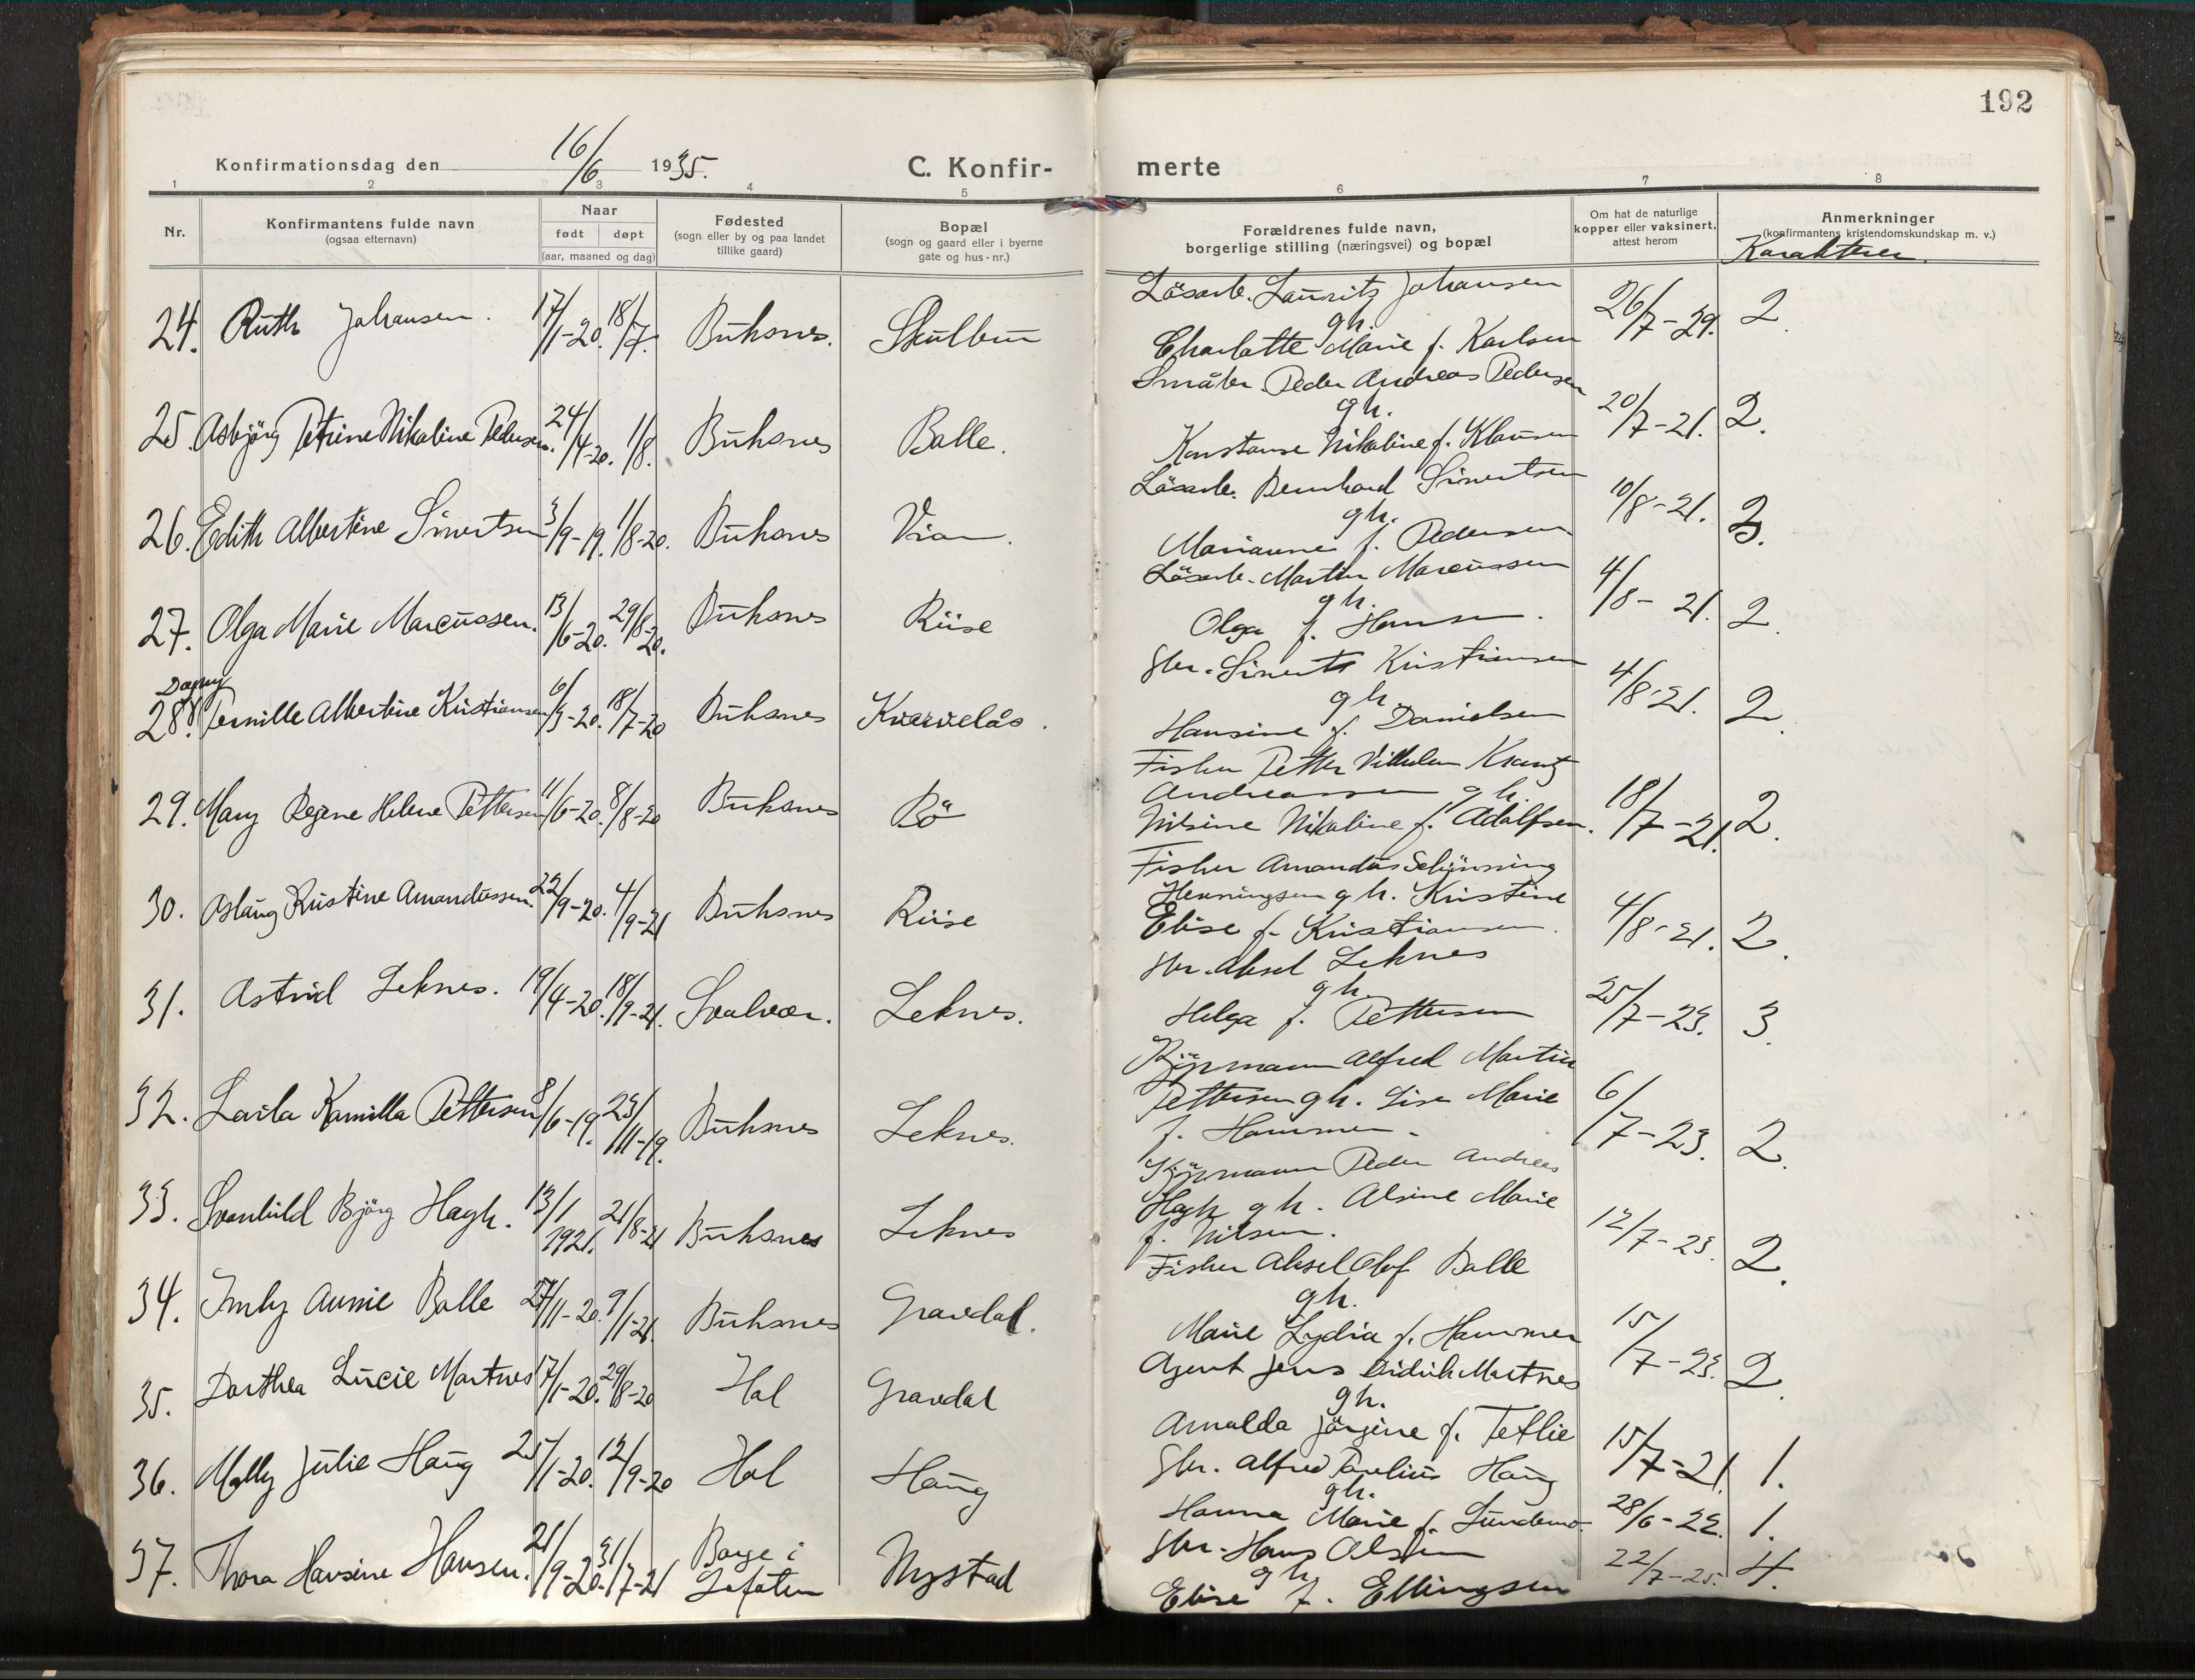 192
Konfirmationsdag den 16/6 1935.
C. Konfir-
merte
1 2 3 4 5 6 7 8
Nr.
Konfirmantens fulde navn
(ogsaa efternavn)
Naar
født døpt
(aar, maaned og dag)
Fødested
(sogn eller by og paa landet
tillike gaard)
Bopæl
(sogn og gaard eller i byerne
gate og hus-nr.)
Forældrenes fulde navn,
borgerlige stilling (næringsvei) og bopæl
Om hat de naturlige
kopper eller vaksinert,
attest herom
Anmerkninger
(konfirmantens kristendomskundskap m. v.)
Karakterer.
24. Ruth Johansen. 17/1-20. 18/7. Buksnes. Skulbru
Lösarb. Lauritz Johansen
gh.
Charlotte Marie f. Karlsen
26/7-29. 2.
25 Asbjörg Petrine Nikoline Pedersen. 24/4-20. 1/8. Buksnes Balle.
Småbr. Peder Andreas Pedersen
gh.
Konstanse Nikoline f. Klausen
20/7-21. 2.
26. Edith Albertine Sivertsen 3/9-19. 1/8-20. Buksnes
Lösarb. Bernhard Sivertsen
gh.
Marianne f. Pedersen
10/8-21.
27. Olga Marie Marcussen. 13/6-20. 29/8-20. Buksnes Riise
Lösarb. Martin Marcussen
gh.
Olga f. Hansen.
4/8-21. 2.
Dagny
28. Pernille Albertine Kristiansen 6/3-20. 18/7-20 Buksnes Kvervelås.
Gbr. Sivert Kristiansen
gh.
Hansine f. Danielsen
4/8-21. 2.
29. Mary Regine Helene Pettersen 11/6-20. 8/8-20 Buksnes Bö
Fisker Petter Vilhelm Krantz
Andreassen gh.
Nilsine Nikoline f. Adolfsen.
18/7-21. 2.
30. Aslaug Kristine Amandussen. 22/9-20. 4/9-21 Buksnes Riise
Fisker Amandus Schjønning
Henningsen gh. Kristine
Elise f. Kristiansen.
4/8-21. 2.
31. Astrid Leknes. 19/4-20. 18/9-21. Svolvær. Leknes.
Gbr. Aksel Leknes
gh.
Helga f. Pettersen
25/7-23. 3.
32. Laila Kamilla Pettersen 8/6-19. 23/11-19. Buksnes Leknes.
Kjöpmann Alfred Martin
Pettersen gh. Lise Marie
f. Hammer.
6/7-23. 2.
33. Svanhild Björg Hagh. 13/1 1921. 21/8-21 Buksnes Leknes
Kjöpmann Peder Andreas
Hagh gh. Alsine Marie
f. Nilsen.
12/7-23. 2.
34. Imly Annie Balle 27/11-20. 9/1-21. Buksnes Gravdal.
Fisker Aksel Olof Balle
gh.
Marie Lydia f. Hammer
15/7-23. 2.
35. Dorthea Lucie Martnes 17/1-20. 29/8-20 Hol Gravdal
Agent Jens Didrik Martnes
gh.
Arnalda Jörgine f. Tetlie
15/7-21. 1.
36. Molly Julie Haug 25/1-20. 12/9-20 Hol Haug
Gbr. Alfred Paulius Haug
gh.
Hanna Marie f. Sundemo
28/6-22. 1.
37. Thora Hansine Hansen. 21/9-20. 31/7-21 Borge i
Lofoten Nystad
Gbr. Hans Olsen
gh.
Elise f. Ellingsen
22/7-25. 4.